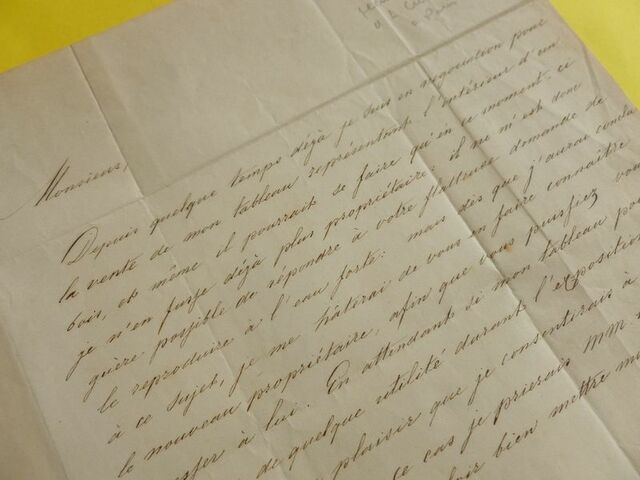 Monsieur,
Depuis quelque temps déjà je suis en négociation pour
la vente de mon tableau représentant l'intérieur d'un
bois, et même il pourrait se faire qu'en ce moment-ci
je n'en fusse déjà plus propriétaire; il ne m'est donc
guère possible de répondre à votre flatteuse demande de
le reproduire à l'eau forte: mais dès que j'aurai conclu
à ce sujet, je me hâterai de vous en faire connaître
le nouveau propriétaire, afin que vous puissiez vous
à lui. En attendant si mon tableau pou
de quelque utilité durant l'exposition
plaisir que je consentirais à
ce cas je prierais MM
bien mettre mo